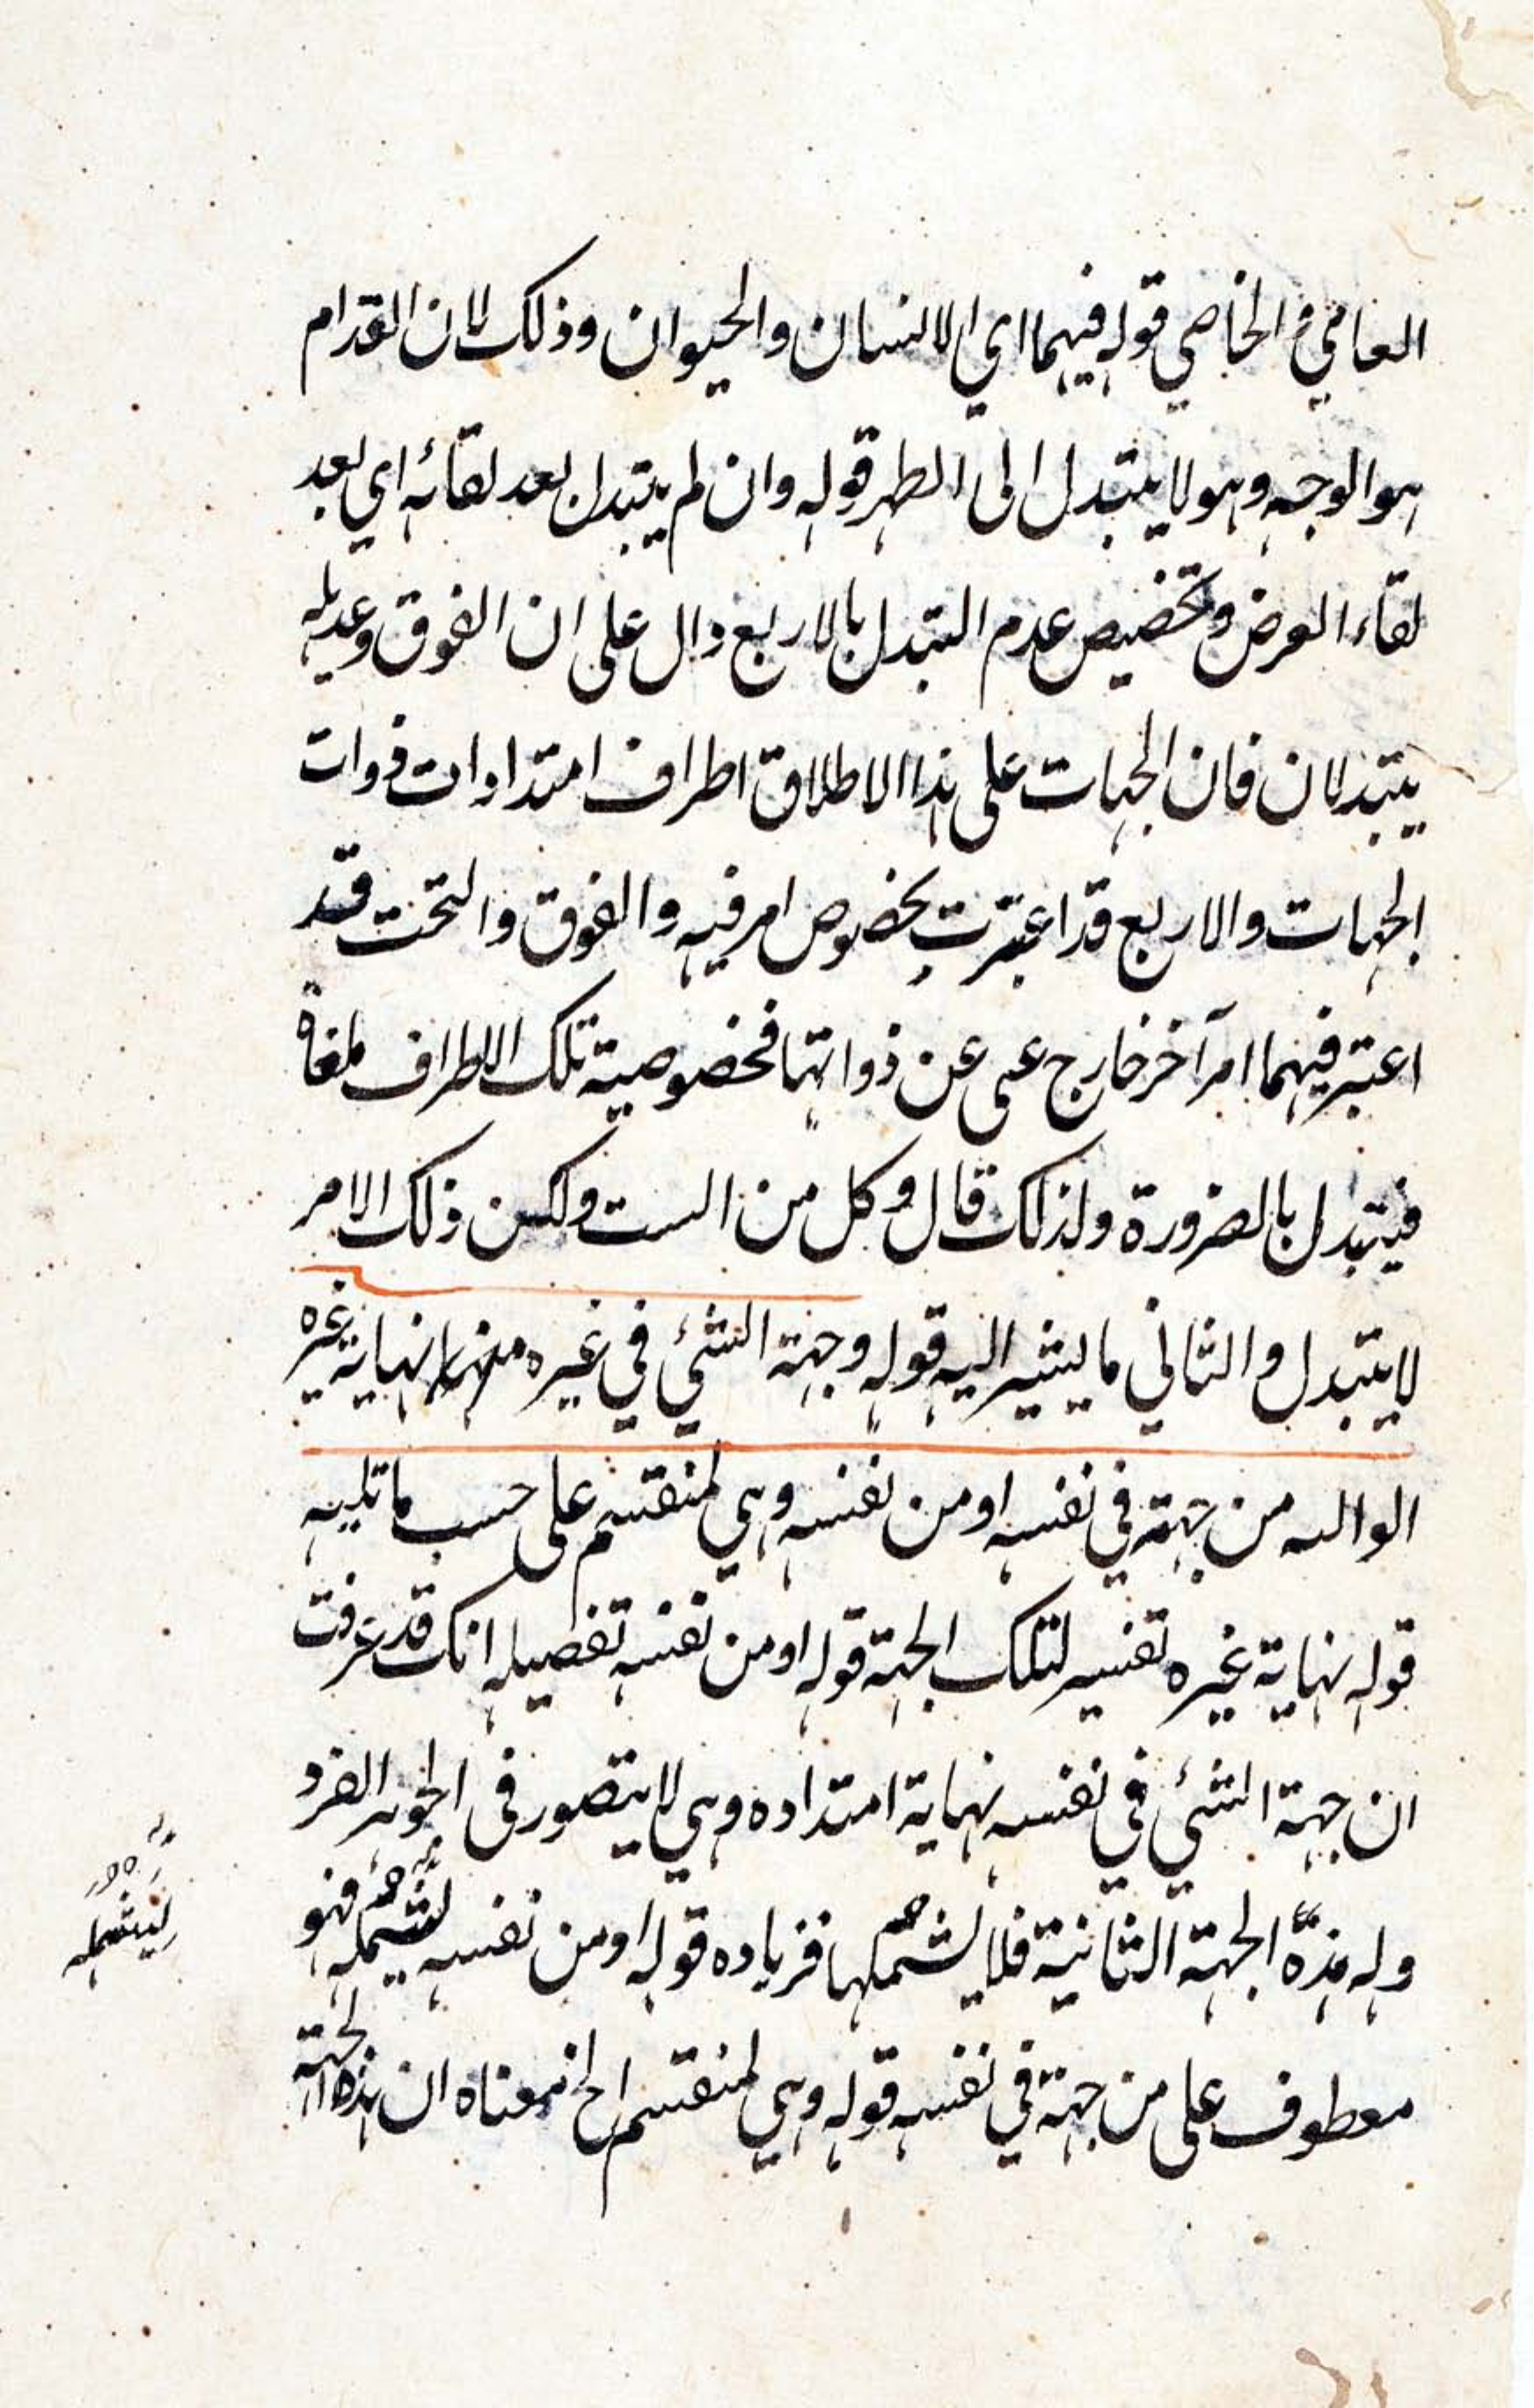 العامي و الخاصي قوله فيهما اي الانسان والحيوان وذلك لان القدام
هو الوجه وهو لا يتبدل الى الظهر قوله وان لم يتبدل بعد لقائه اي بعد
لقاء العرض وتخصيص عدم التبدل بالاربع دال على ان الفوق وعديله
يتبدلان فان الجهات على هذا الاطلاق اطراف امتدادات ذوات
الجهات والاربع قد اعتبرت بخصوص امر فيه والفوق والتحت قد
اعتبر فيهما امر آخر خارج عن ذواتهما فخصوصية تلك الاطراف ملغاة
فيتبدل بالضرورة ولذلك قال وكل من الست ولكن ذلك الامر
لا يتبدل والثاني ما يشير اليه قوله وجهة الشئي في غيره منهما نهاية غيره
من جهة في نفسه او من نفسه وهي لمنقسم على حسب ما تليه
قوله نهاية غيره تفسير لتلك الجهة قوله او من نفسه تفصيله انك قد عرفت
ان جهة الشئي في نفسه نهاية امتداده وهي لا يتصور في الجوهر الفرد
وله هذه الجهة الثانية فلا يشملها فزياده قوله او من نفسه ليشمله فهو
معطوف على من جهة في نفسه قوله وهي لمنقسم الخ معناه ان هذه الجهة
ليشمله